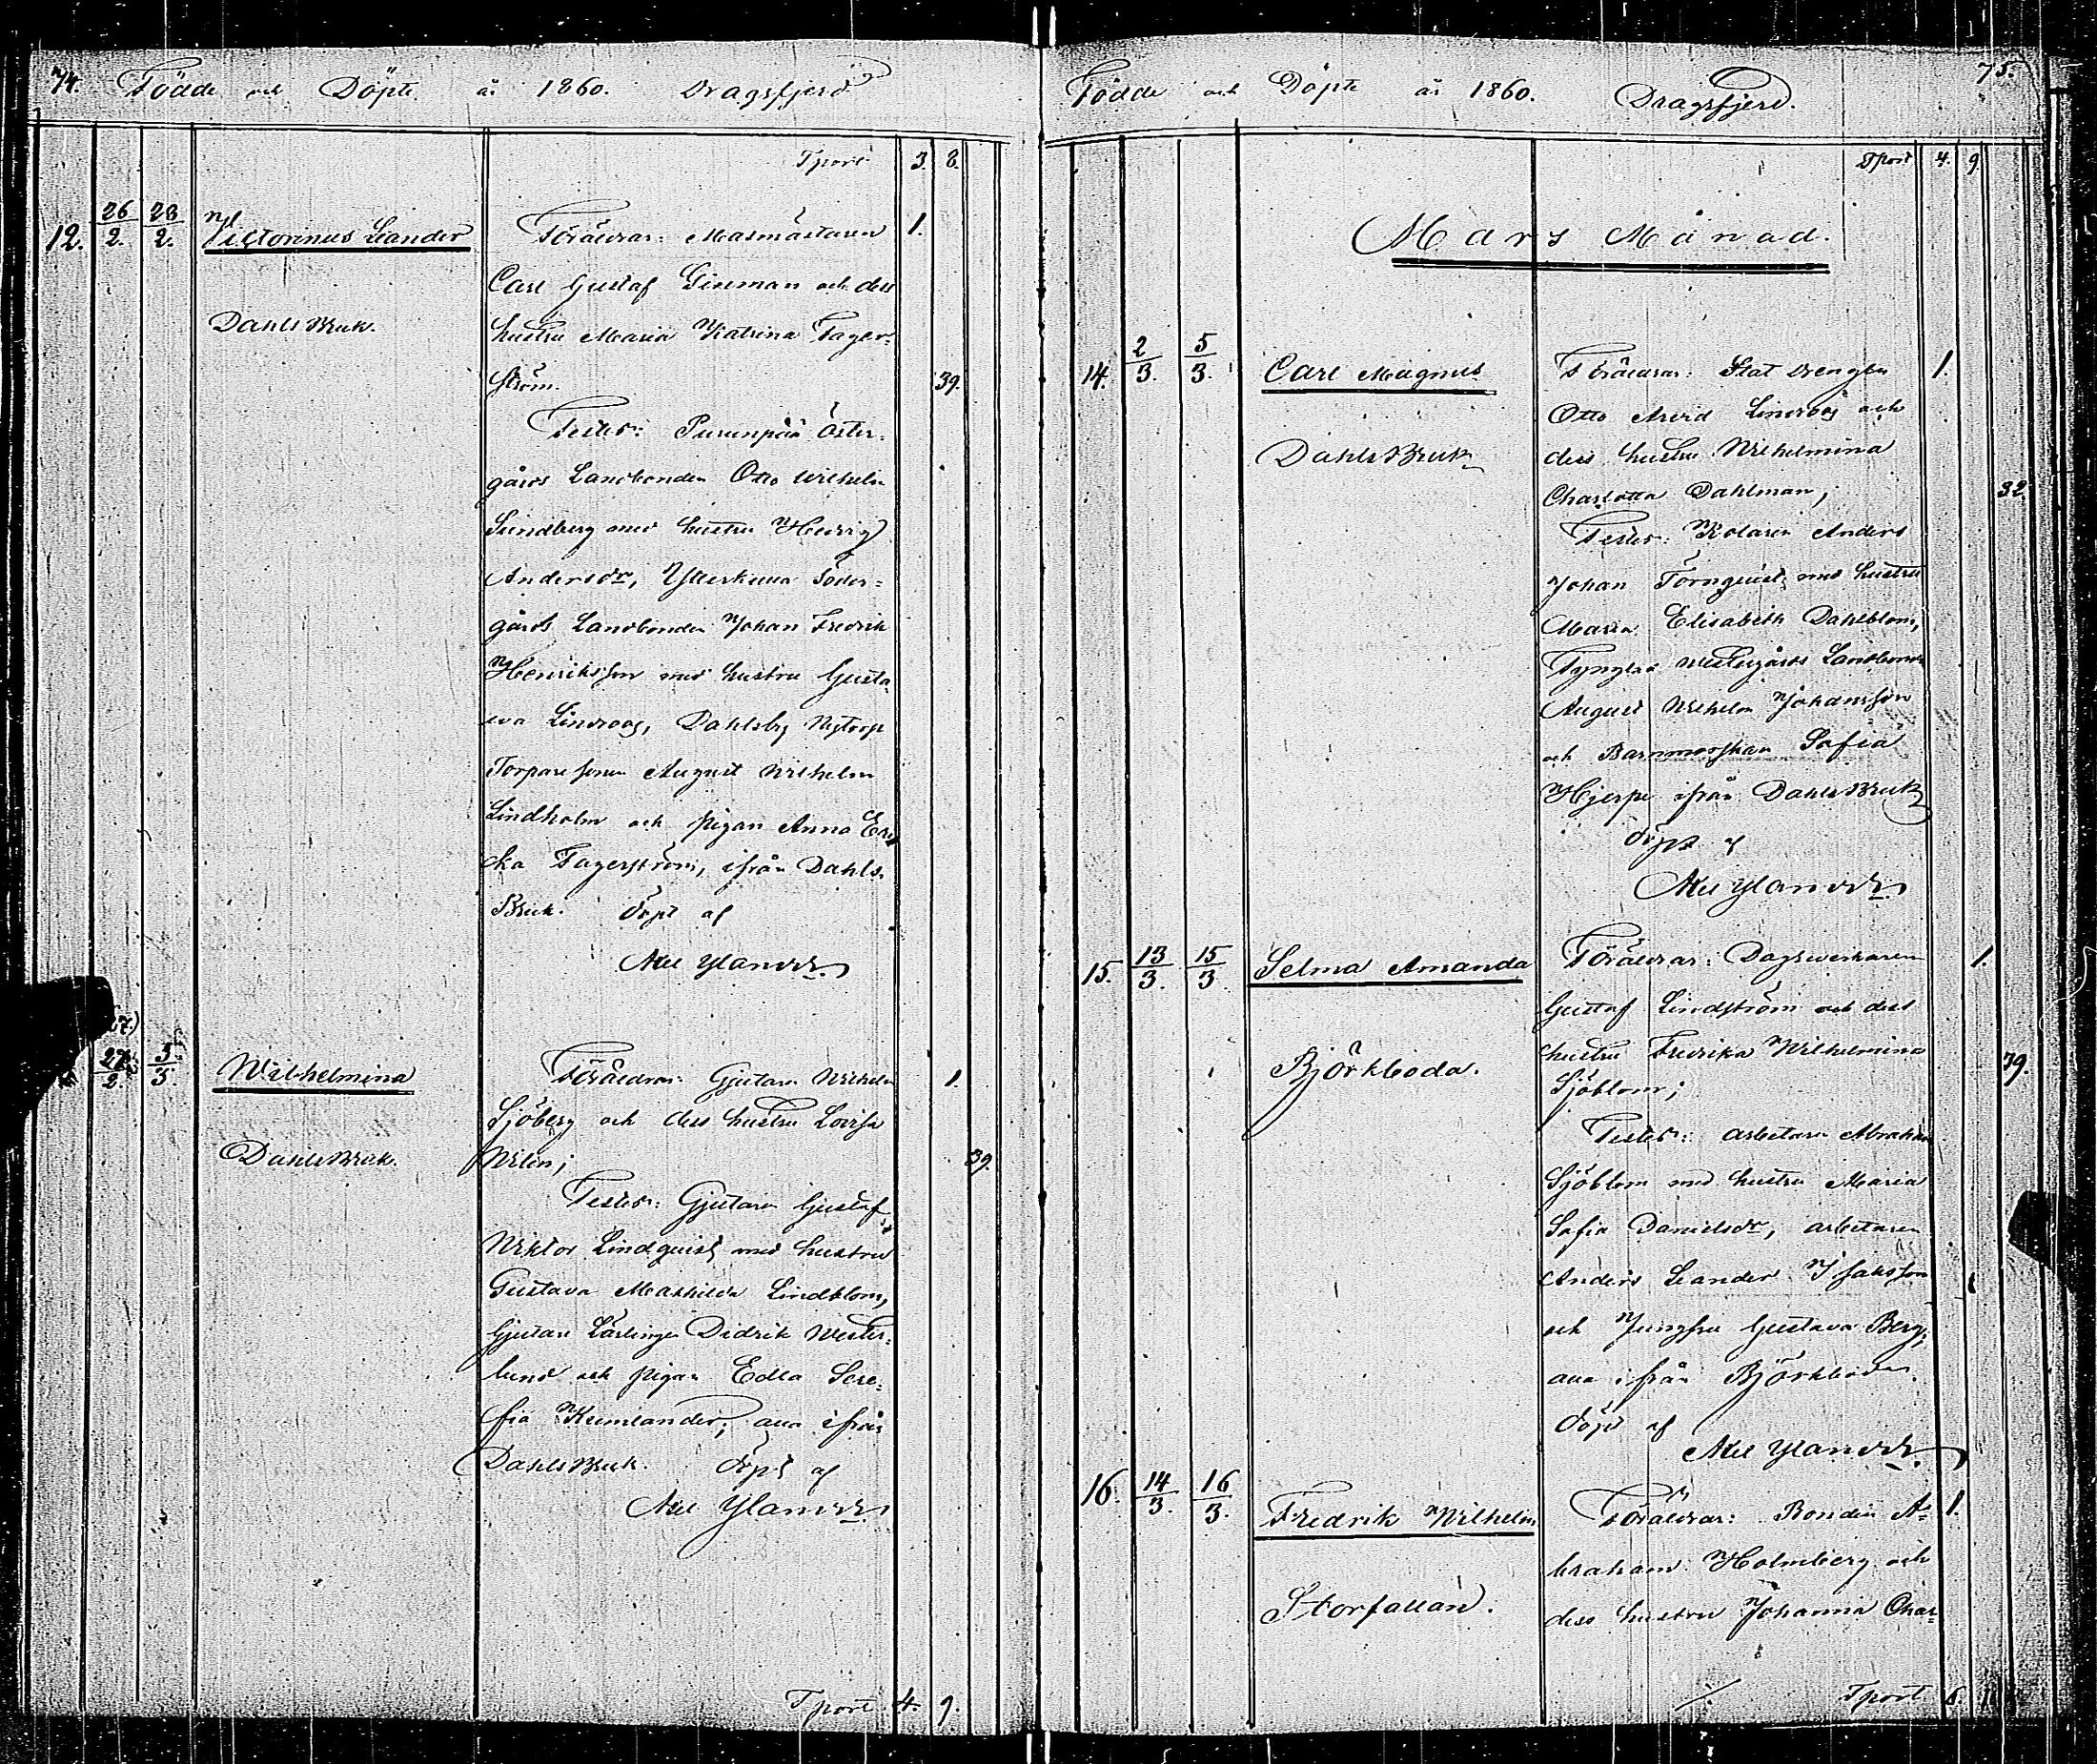 74. Födde och Döpte år 1860. Dragsfjerd
Tport 3. 8.
12. 26/2. 28/2. Victorinus Leander Föräldrar: Masmästaren 1.
Carl Gustaf Ginman och dess
Dahls Bruk. hustru Maria Katrina Fager-
ström. 39.
Testes: Purunpää Öster-
gårds Landbonden Otto Wilhelm
Sundberg med hustru Hedvig
Andersdr, Ytterkulla Söder-
gårds Landbonden Johan Fredrik
Henriksson med hustru Gusta-
va Lindroos, Dahlsby Nytorp
Torpare sonen August Wilhelm
Lindholm och pigan Anna Eri-
cka Fagerström, ifrån Dahls
Bruk. döpt af
Axel Ylander
27/2. 5/3. Wilhelmina Föräldrar: Gjutaren Wilhelm 1.
Sjöberg och dess hustru Lovisa
Dahls Bruk. Wilen; 39.
Testes: Gjutaren Gustaf
Wiktor Lindquist med hustru
Gustava Mathilda Lindblom,
Gjutare Lärlingen Didrik Wester-
lund och pigan Edla Sere-
fia Kumlander, alla ifrån
Dahls Bruk. döpt af
Axel Ylander
Tport 4. 9.
Födde och Döpte år 1860. Dragsfjerd. 75.
Tport 4. 9.
Mars Månad.
14. 2/3. 5/3. Carl Magnus Föräldrar: Stat drengen 1.
Otto Arvid Lindroos och
Dahls Bruk dess hustru Wilhelmina
Charlotta Dahlman; 32
Testes: Kolaren Anders
Johan Törnquist med hustru
Maria Elisabeth Dahlblom,
Westergårds Landbonde
August Wilhelm Johansson
och Barnmorskan Sofia
Hjerpe ifrån Dahls Bruk
döpt af
Axel Ylander
15. 13/3. 15/3. Selma Amanda Föräldrar: Dagsverkaren 1.
Gustaf Lindström och dess
Björkboda. hustru Fredrika Wilhelmina 39.
Sjöblom;
Testes: arbetaren Abraham
Sjöblom med hustru Maria
Sofia Danielsdr, arbetaren
Anders Leander Isaksson
och Jungfru Gustava Berg,
alla ifrån Björkboda.
döpt af
Axel Ylander
16. 14/3. 16/3. Fredrik Wilhelm Föräldrar: Bonden A- 1.
braham Holmberg och
Storfallan. dess hustru Johanna Char-
Tport